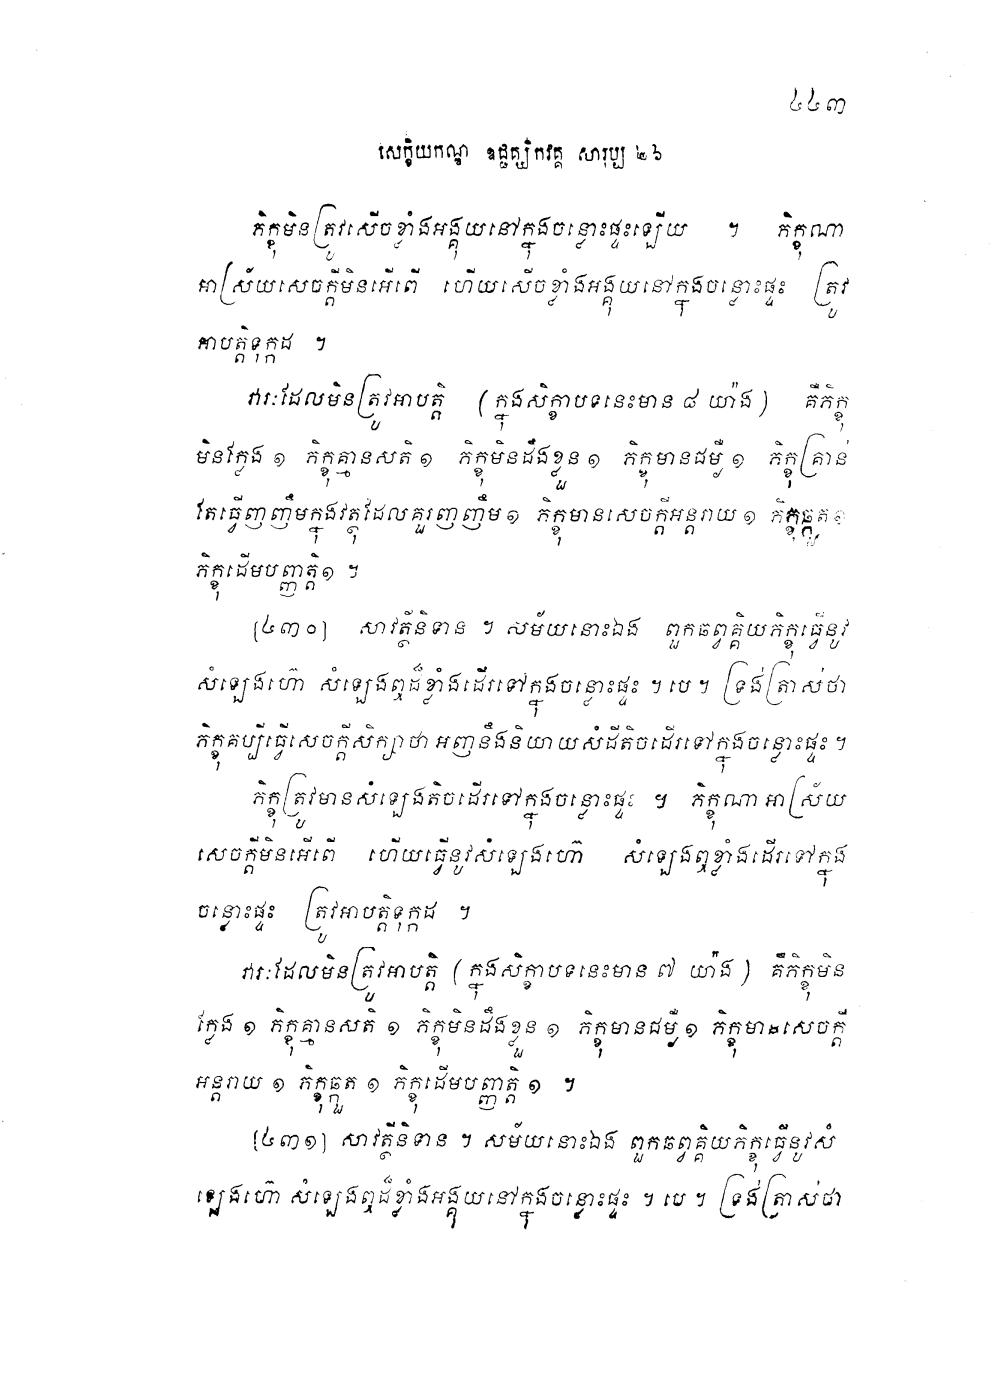 ៤៤៣
សេក្ខិយកណ្ឌ ឧជ្ជគ្ឃិកវគ្គ សារុប្ប ២៦
ភិក្ខុមិនត្រូវសើចខ្លាំងអង្គុយនៅក្នុងចន្លោះផ្ទះឡើយ ។ ភិក្ខុណា
អាស្រ័យសេចក្តីមិនអើពើ ហើយសើចខ្លាំងអង្គុយនៅក្នុងចន្លោះផ្ទះ ត្រូវ
អាបត្តិទុក្កដ ។
វារៈដែលមិនត្រូវអាបត្តិ (ក្នុងសិក្ខាបទនេះមាន ៨ យ៉ាង) គឺភិក្ខុ
មិនក្លែង ១ ភិក្ខុគ្មានសតិ ១ ភិក្ខុមិនដឹងខ្លួន ១ ភិក្ខុមានជម្ងឺ ១ ភិក្ខុគ្រាន់
តែធ្វើញញឹមក្នុងវត្ថុដែលគួរញញឹម ១ ភិក្ខុមានសេចក្តីអន្តរាយ ១ ភិក្ខុឆ្កួត ១
ភិក្ខុដើមបញ្ញត្តិ ១ ។
(៤៣០) សាវត្ថីនិទាន ។ សម័យនោះឯង ពួកឆព្វគ្គិយភិក្ខុធ្វើនូវ
សំឡេងហ៊ោ សំឡេងឮដ៏ខ្លាំងដើរទៅក្នុងចន្លោះផ្ទះ ។ បេ ។ ទ្រង់ត្រាស់ថា
ភិក្ខុគប្បីធ្វើសេចក្តីសិក្សាថា អញនឹងនិយាយសំដីតិចដើរទៅក្នុងចន្លោះផ្ទះ ។
ភិក្ខុត្រូវមានសំឡេងតិចដើរទៅក្នុងចន្លោះផ្ទះ ។ ភិក្ខុណា អាស្រ័យ
សេចក្តីមិនអើពើ ហើយធ្វើនូវសំឡេងហ៊ោ សំឡេងឮខ្លាំងដើរទៅក្នុង
ចន្លោះផ្ទះ ត្រូវអាបត្តិទុក្កដ ។
វារៈដែលមិនត្រូវអាបត្តិ (ក្នុងសិក្ខាបទនេះមាន ៧ យ៉ាង) គឺភិក្ខុមិន
ក្លែង ១ ភិក្ខុគ្មានសតិ ១ ភិក្ខុមិនដឹងខ្លួន ១ ភិក្ខុមានជម្ងឺ ១ ភិក្ខុមានសេចក្តី
អន្តរាយ ១ ភិក្ខុឆ្កួត ១ ភិក្ខុដើមបញ្ញត្តិ ១ ។
(៤៣១) សាវត្ថីនិទាន ។ សម័យនោះឯង ពួកឆព្វគ្គិយភិក្ខុធ្វើនូវសំ
ឡេងហ៊ោ សំឡេងឮដ៏ខ្លាំងអង្គុយនៅក្នុងចន្លោះផ្ទះ ។ បេ ។ ទ្រង់ត្រាស់ថា